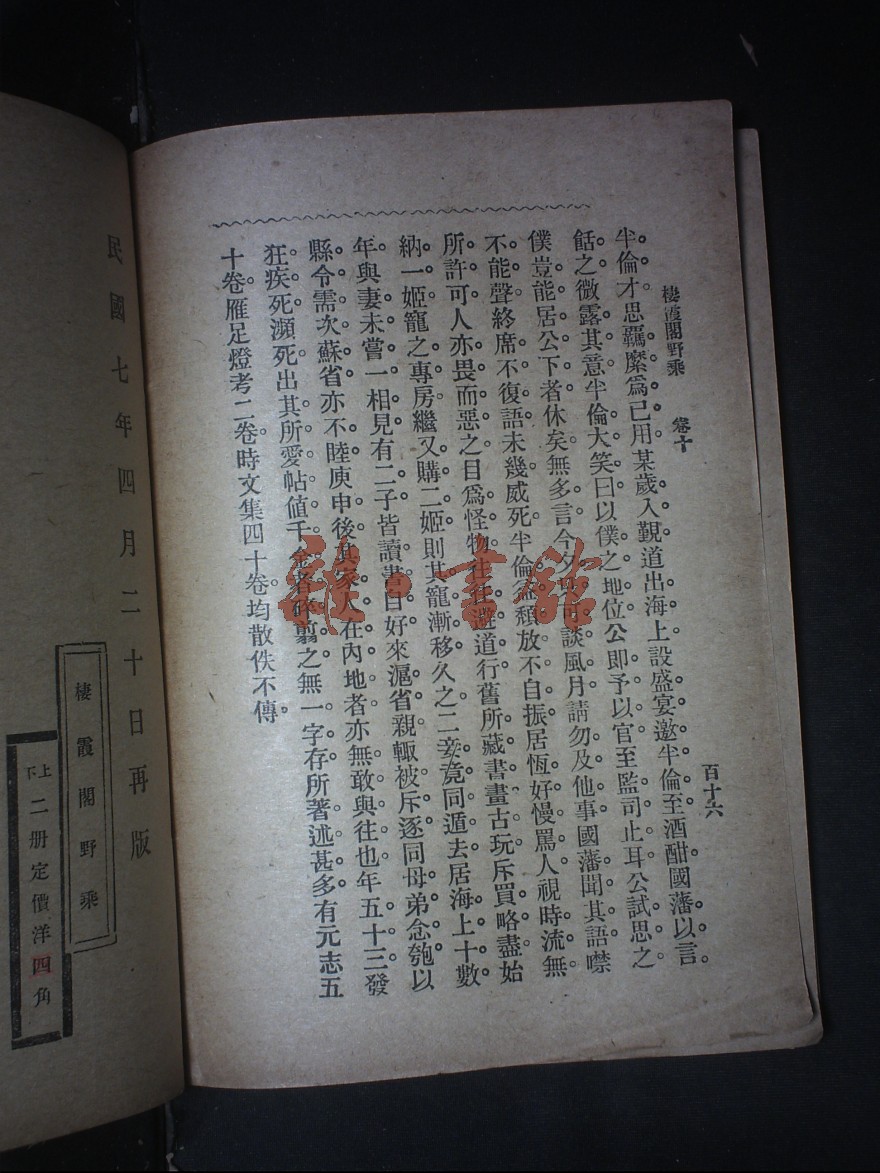 棲霞閣野乘　卷十　百十六
半倫才思羈縻爲已用某歲入覲道出海上設盛宴邀半倫至酒酣國藩以言。
餂之微露其意半倫大笑曰以僕之地位公即予以官至監司止耳公試思之
僕豈能居公下者休矣無多言今夕可談風月請勿及他事國藩聞其語噤
不能聲終席不復語未幾威死半倫益頹放不自振居恆好慢罵人視時流無
所許可人亦畏而惡之目爲怪物往往避道行舊所藏書畫古玩斥買略盡始
納一姬寵之專房繼又購二姬則其寵漸移久之二妾竟同遁去居海上十數
年與妻未嘗一相見有二子皆讀書自好來滬省親輒被斥逐同母弟念匏以
縣令需次蘇省亦不睦庚申後其家人在內地者亦無敢與往也年五十三發
狂疾死瀕死出其所愛帖值千金者碎翦之無一字存所著述甚多有元志五
十卷雁足燈考二卷時文集四十卷均散佚不傳。
雜·書館
民國七年四月二十日再版
棲霞閣野乘
上下二册定價洋四角